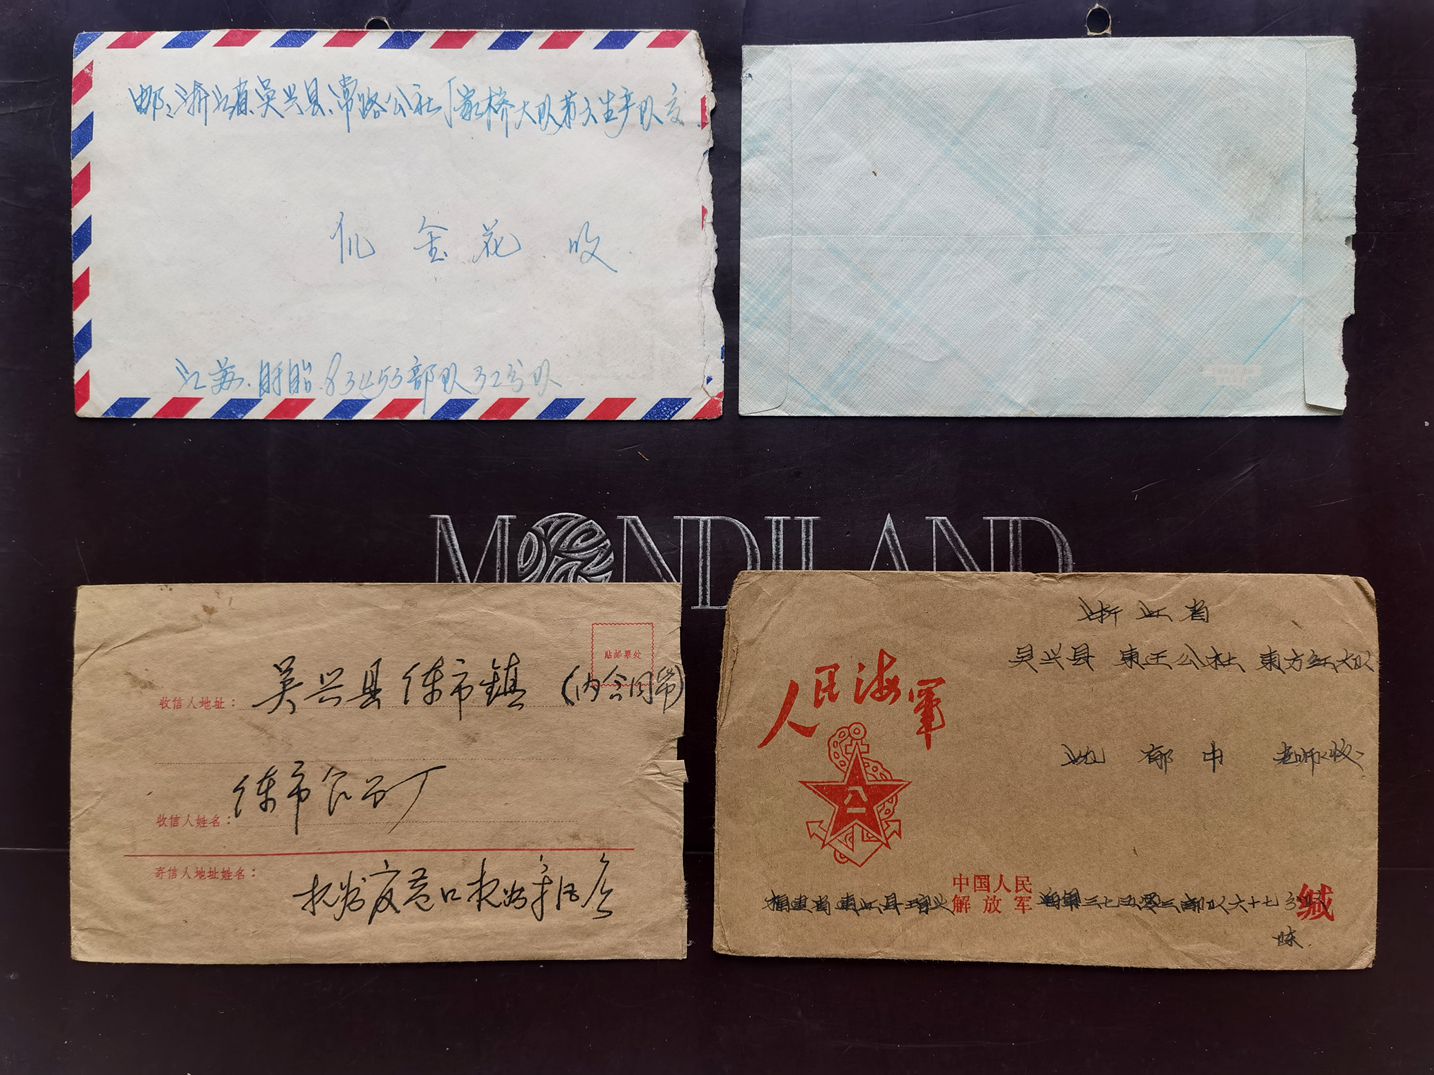 邮:浙江省吴兴县常路公社
桥大队第六生产队交
金花 收
江苏.盱眙.83453部队32分队
MONDILAND
贴邮票处
收信人地址:
吴兴县练市镇(内合同等)
收信人姓名:
练市食品厂
寄信人地址姓名:
人民海军
八一
浙江省
吴兴县 东王公社 东方红大队
沈 郁中 老师收
福建省连江县琯头
中国人民
解放军
海军三七五零三部队六十七分队
缄